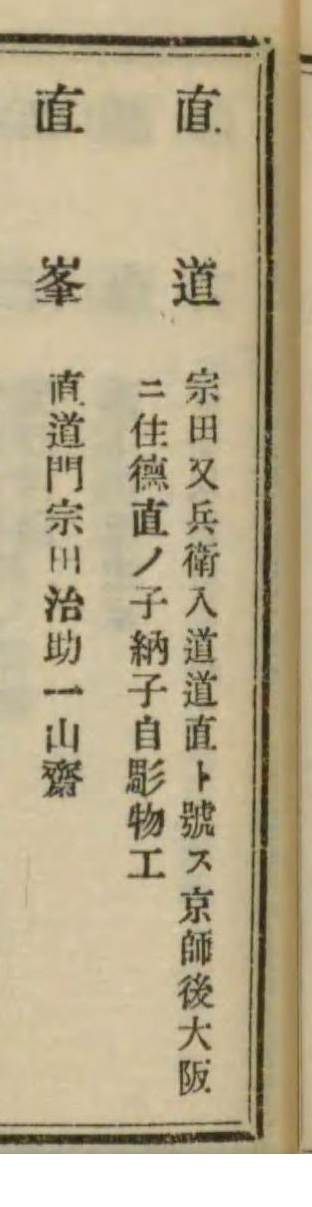 直道 宗田又兵衛入道道直ト號ス京師後大阪
ニ住德直ノ子納子自彫物工
直峯 直道門宗田治助一山齋